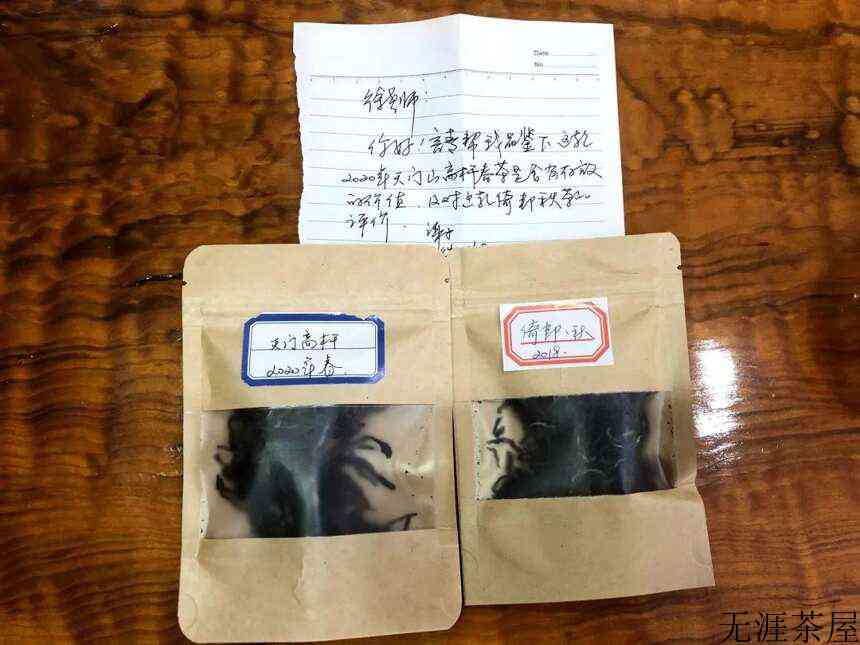 Date
No
徐老师：
你好！请帮我品鉴下这款
2020年天门山高杆春茶是否有存放
的价值，及对这款倚邦秋茶的
评价.
谢谢
天门高杆
2020年春.
倚邦、秋
2018.
无涯茶屋